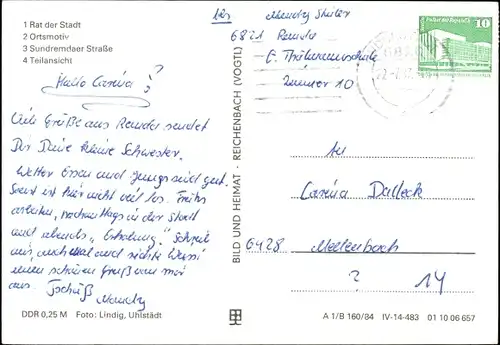 1 Rat der Stadt
2 Ortsmotiv
3 Sundremdaer Straße
4 Teilansicht
Hallo Carina!
Viele Grüße aus Remda sendet
Dir Deine kleine Schwester.
Wetter Essen und Jungs sind gut.
Sonst ist hier nicht viel los. Früh
arbeiten, nachmittags in der Stadt
und abends „Erholung". Schreib
mir auch mal und richte Mutti
einen schönen Gruß von mir
aus. Tschüß Mandy
DDR 0,25 M Foto: Lindig, Uhlstädt
BILD UND HEIMAT · REICHENBACH (VOGTL)
Abs. Mandy
6821 Remda
Zimmer 10
Palast der Republik
DDR
10
An
Carina
6428 Mellenbach
?
14
A 1/B 160/84 IV-14-483 01 10 06 657